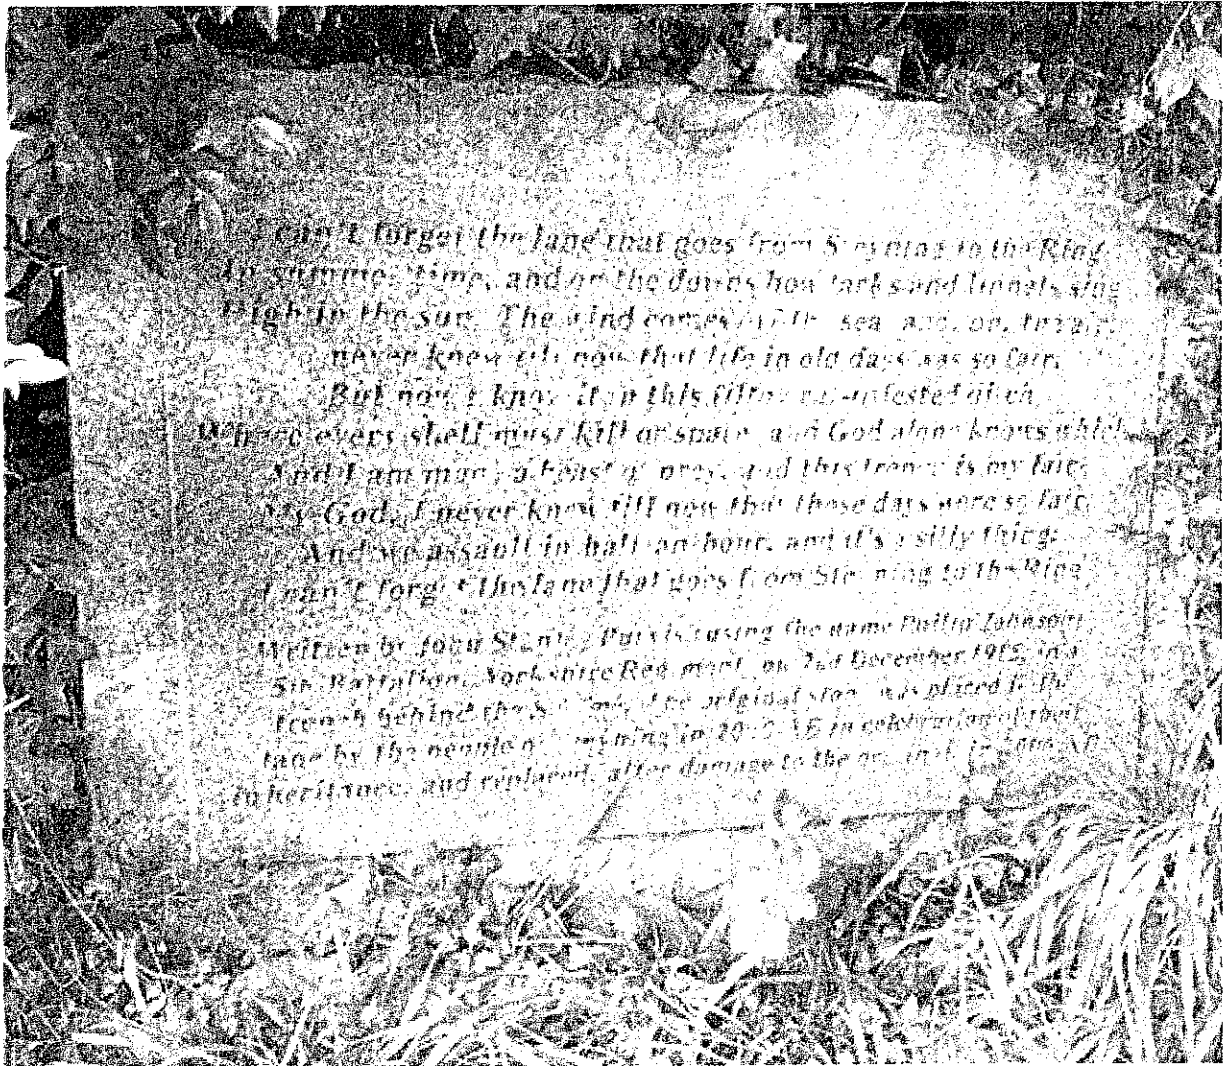 I can't forget the lane that goes from Steyning to the Ring
In summer time, and on the downs how larks and linnets sing
High in the sun. The wind comes off the sea, and, oh, the air!
never knew till now that life in old days was so fair.
But now I know it in this filthy rat-infested ditch
Where every shell must kill or spare, and God alone knows which.
And I am made a beast of prey, and this trench is my lair.
My God, I never knew till now that those days were so fair.
And we assault in half-an-hour, and it's a silly thing:
I can't forget the lane that goes from Steyning to the Ring
Written by John Stanley Purvis (using the name Philip Johnson)
5th Battalion, Yorkshire Regiment, on 2nd December 1915, in a
trench behind the The original stone was placed in the
lane by the people of Steyning in in celebration of their
inheritance, and replaced, after damage to the original, in